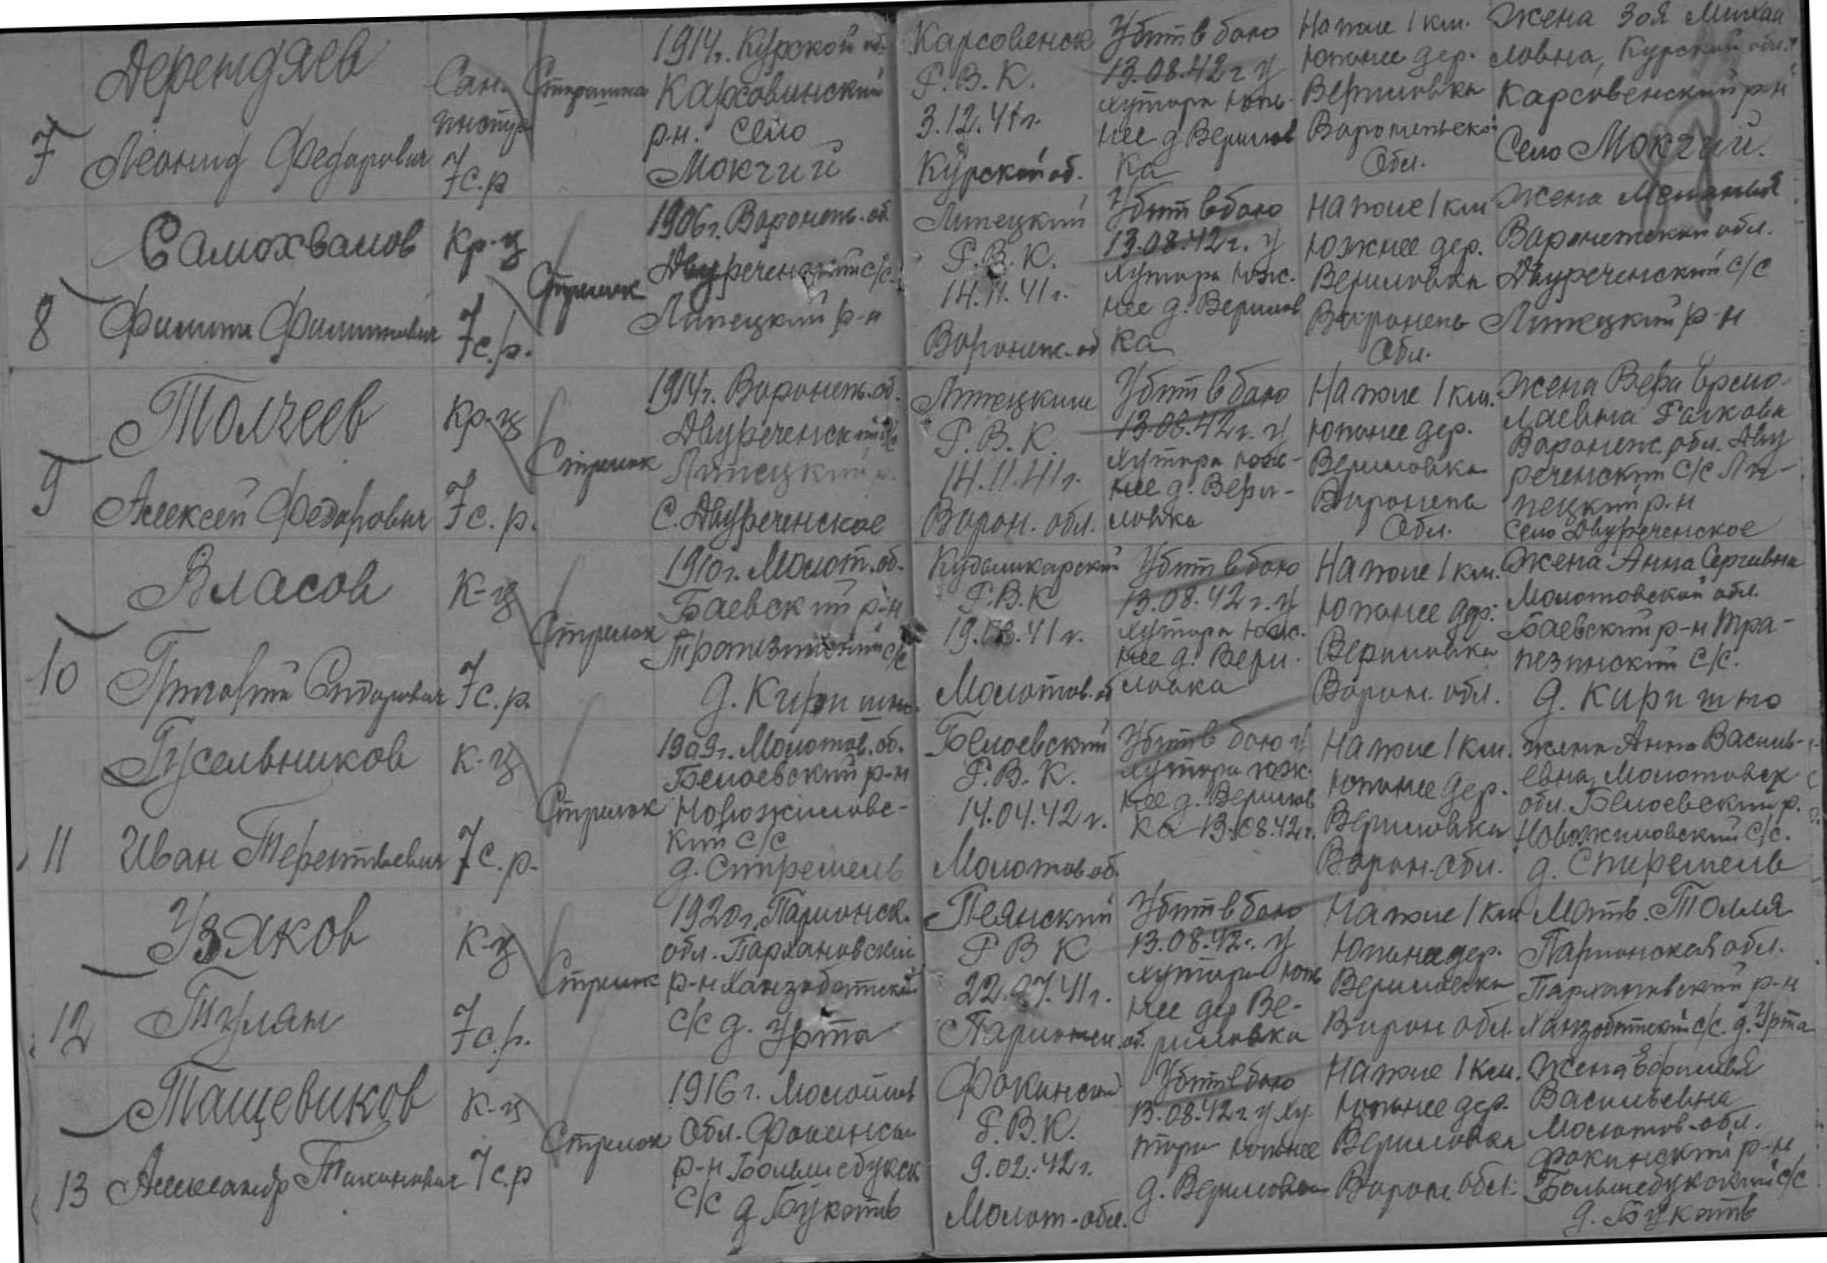 7
Дерендяев
Леонид Федорович
Сан.
инстр.
7 с.р
Старшина
1914г. Курской об.
Карсовинский
р-н. село
Мокчий
Карсовенск
Р.В.К.
3.12.41г.
Курской об.
Убит в бою
13.08.42 г у
хутора Юж-
нее д Верилов
ка
На поле 1 км.
Южнее дер.
Вериловка
Обл.
Жена Зоя Михай
ловна, Курской обл.
Карсовенский р-н
Село Мокчий.
8
Самохвалов
Филипп Филиппович
Кр-ц
7 с.р.
Стрелок
1906г. Воронеж. об
Двуреченский с/с.
Липецкий р-н
Липецкий
Р.В.К.
14.11.41г.
Воронеж. об
Убит в бою
13.08.42г. у
хутора Юж.
нее д. Верилов
ка
На поле 1 км
Южнее дер.
Вериловка
Воронеж
Обл.
Жена Меланья
Воронежской обл.
Двуреченский с/с
Липецкий р-н
9
Толчеев
Алексей Федорович
Кр-ц
7 с.р.
Стрелок
1914г. Воронеж. об.
Двуреченский с/с
Липецкий р.
С. Двуреченское
Липецким
Р.В.К.
14.11.41г.
Ворон. обл.
Убит в бою
13.08.42г. у
хутора Юж-
нее д. Вери-
ловка
На поле 1 км.
Южнее дер.
Вериловка
Воронеж
Обл.
Жена Вера
Воронеж. обл. Дву
реченский с/с Ли-
пецкий р-н
Село Двуреченское
10
Власов
Григорий Сидорович
К-ц
7 с.р.
Стрелок
1910г. Молот. об.
Баевский р-н
с/с
Кудымкарский
Р.В.К
41г.
Молотов. об
Убит в бою
13.08.42г. у
хутора Юж.
нее д. Вери-
ловка
На поле 1 км.
Южнее дер.
Вериловка
Ворон. обл.
Жена Анна Сергеевна
Молотовской обл.
Баевский р-н Тра-
пезинский с/с.
д. Киришно
11
Гусельников
Иван Терентьевич
К-ц
7 с.р.
Стрелок
1909г. Молотов. об.
Белоевский р-н
Новожиловс-
кий с/с
д. Стремель
Белоевский
Р.В.К.
14.04.42г.
Молотов об.
Убит в бою у
хутора юж.
нее д. Верилов
ка 13.08.42г.
На поле 1 км.
Южнее дер.
Вериловка
Ворон. обл.
жена Анна Василь-
евна, Молотовск
обл. Белоевский р.
Новожиловский с/с.
12
Узяков
Тулян
К-ц
7 с.р.
Стрелок
1920г.
обл.
р-н
с/с д. Урта
Р В К
22.07.41г.
Убит в бою
13.08.42г. у
хутора Юж
нее дер Ве-
риловка
На поле 1 км
Южнее дер.
Вериловка
Ворон обл.
Мать. Толля
обл.
р-н
с/с. д. Урта
13
Тащевиков
Александр Тихонович
К-ц
7 с.р
Стрелок
1916г. Молотов
Обл. Фокинск
р-н Большебукск
с/с
Фокинский
Р.В.К.
9.02.42г.
Молот-обл.
Убит в бою
13.08.42г у ху
тора Южнее
д. Вериловка
На поле 1 км.
Южнее дер.
Вериловка
Ворон. обл.
Жена Ефимья
Васильевна
Молотов-обл.
Фокинский р-н
Большебукский с/с